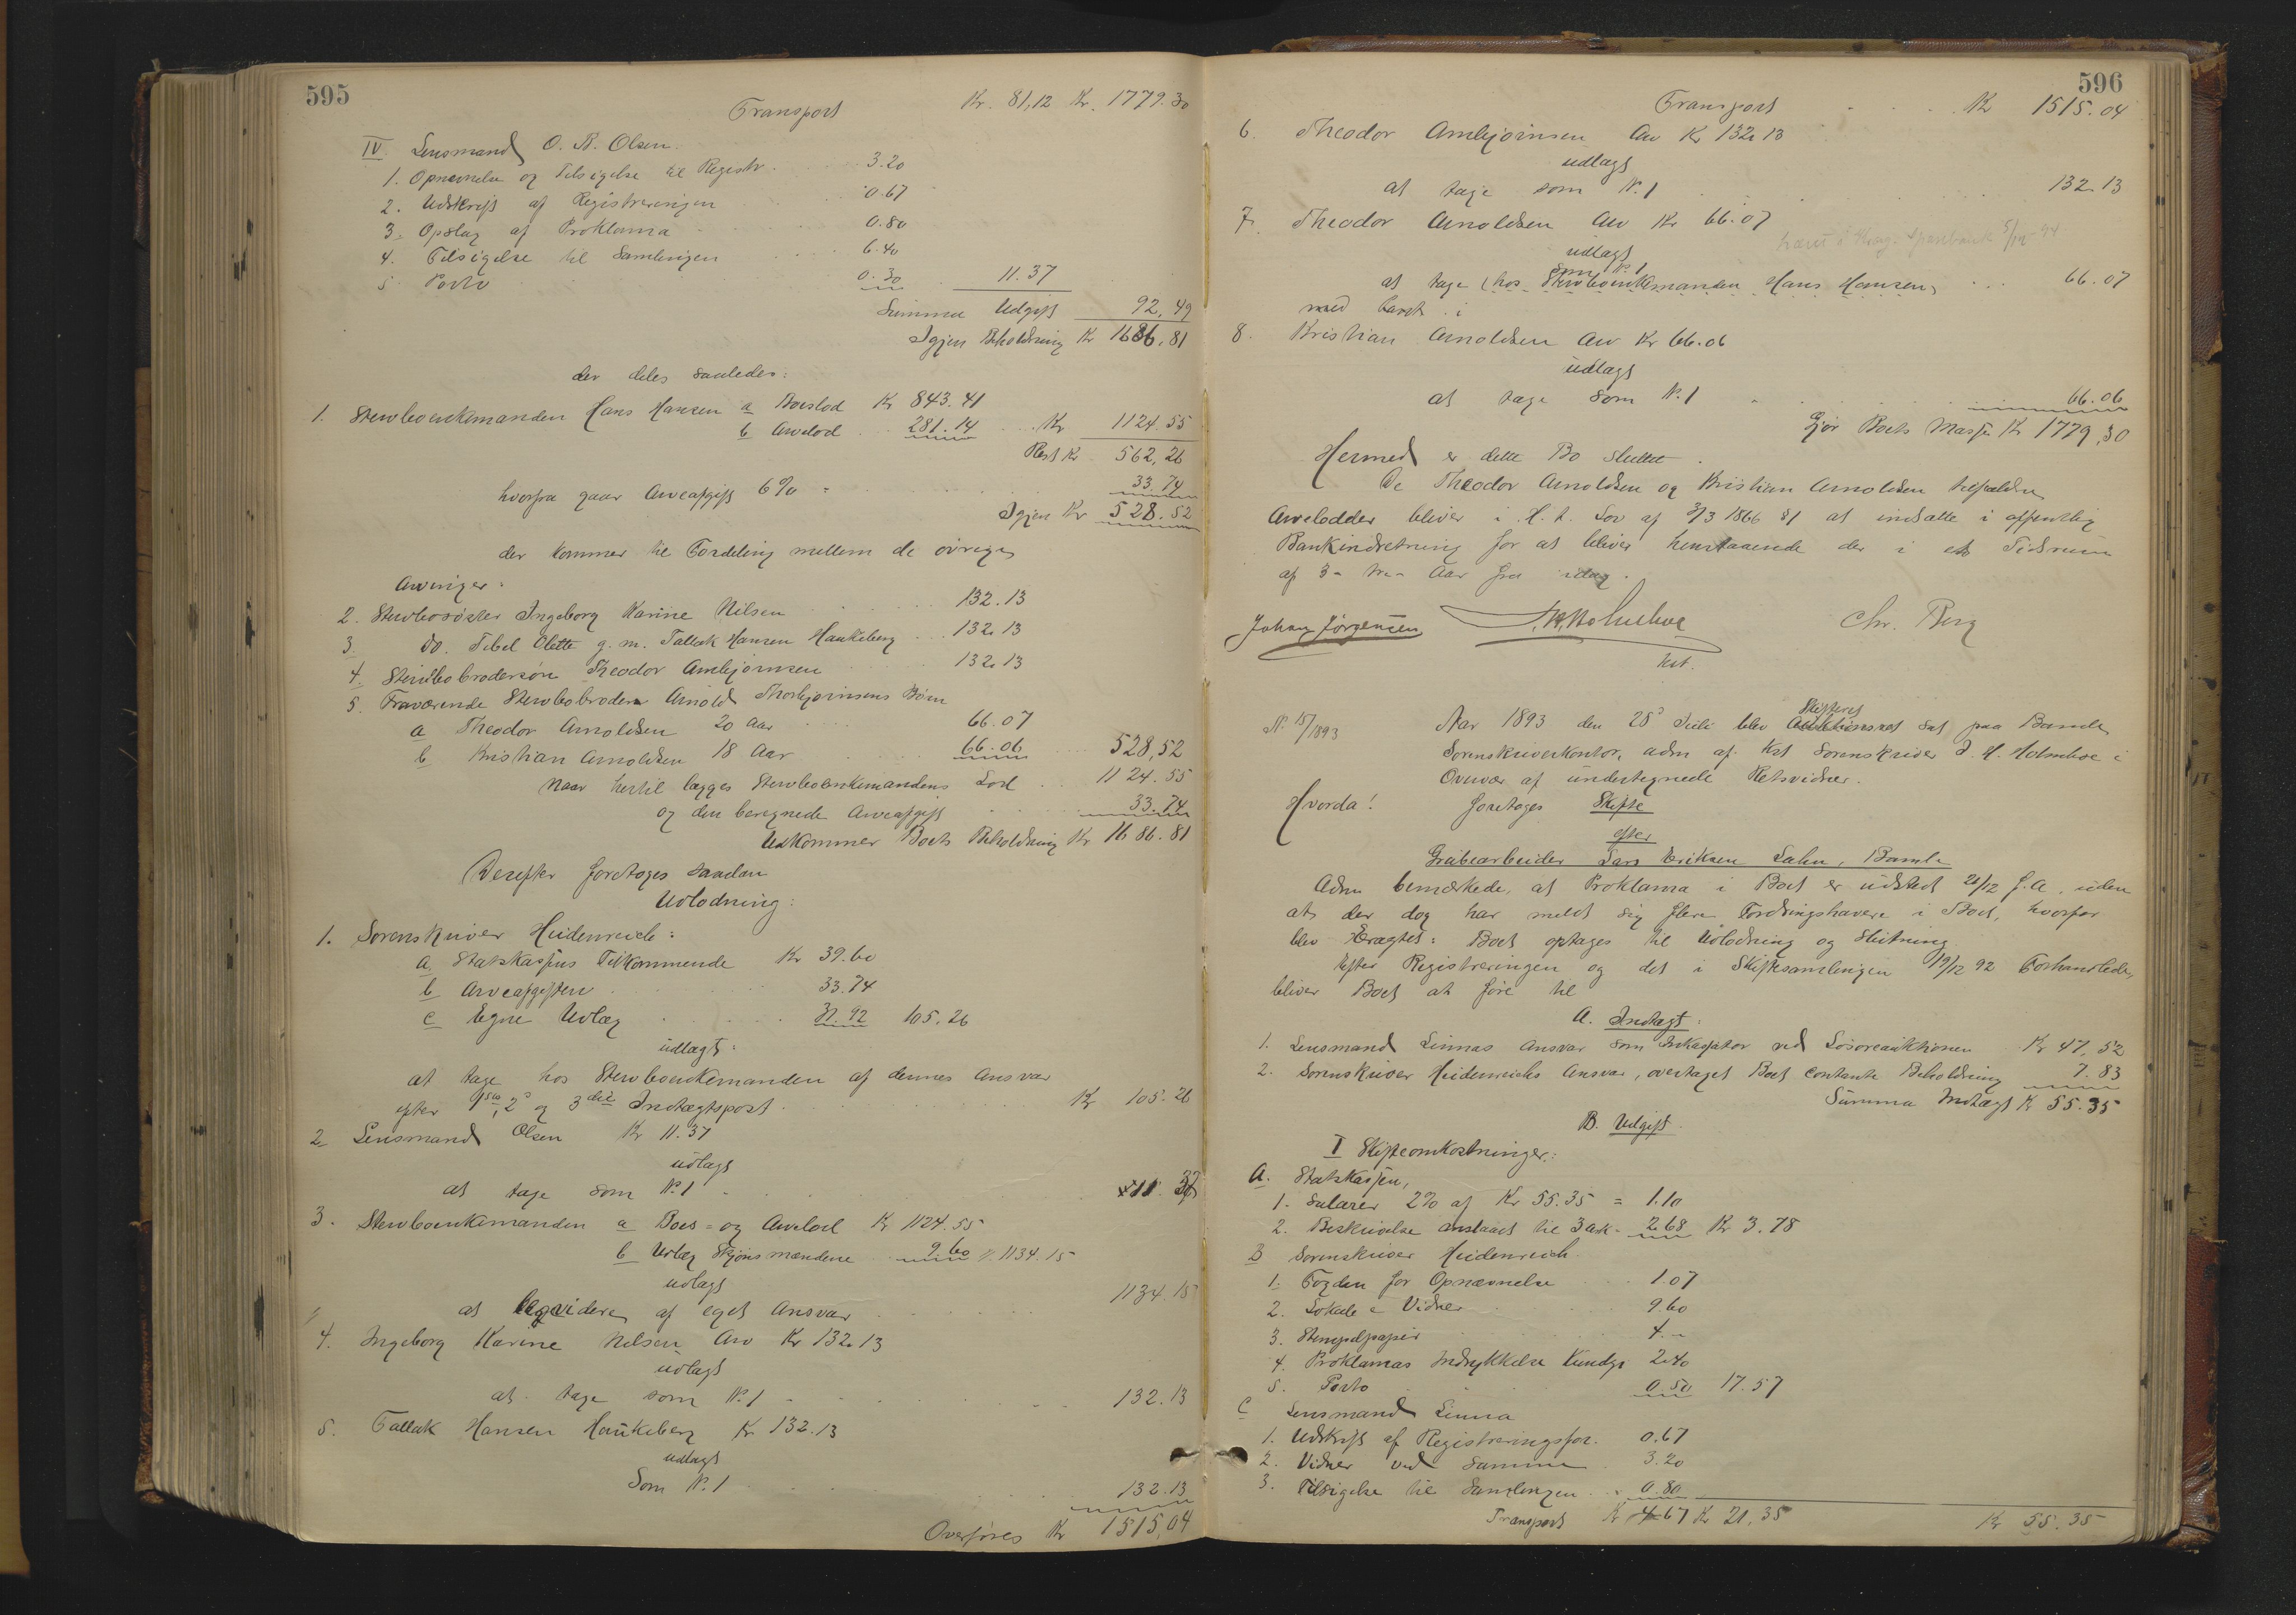 595
Transport Kr. 81,12 Kr. 1779.30
IV. Lensmand O. R. Olsen
1. Opnævnelse og Tilsigelse til Registr. 3.20
2. Udskrift af Registreringen 0.67
3. Opslag af Proklama 0.80
4. Tilsigelse til Samlingen 6.40
5. Porto 0.30 11.37
Summa Udgift 92,49
Igjen Beholdning Kr 1686,81
der deles saaledes:
1. Stervboenkemanden Hans Hansen a Boeslod Kr 843.41
b Arvelod 281.14 Kr 1124.55
Rest Kr 562,26
hvorfra gaar Arveafgift 6% = 33.74
Igjen Kr 528.52
der kommer til Fordeling mellem de øvrige
Arvinger:
2. Stervbosøster Ingeborg Karine Nilsen 132.13
3. do. Sibel Olette g. m. Tallak Hansen Haukeberg 132.13
4. Stervbobrodersøn Theodor Ambjørnsen 132.13
5. Fraværende Stervbobroder Arnold Thorbjørnsens Børn
a Theodor Arnoldsen 20 Aar 66.07
b Kristian Arnoldsen 18 Aar 66.06 528,52
Naar hertil lægges Stervboenkemandens Lod 1124.55
og den beregnede Arveafgift 33.74
Udkommer Boets Beholdning Kr 1686.81
Derefter foretoges saadan
Udlodning:
1. Sorenskriver Heidenreich:
a, Statskassens Tilkommende Kr 39.60
b Arveafgiften 33.74
c Egne Udlæg 31.92 105.26
udlagt:
at tage hos Stervboenkemanden af dennes Ansvar
efter 1ste, 2d og 3die Indtægtspost Kr 105.26
2 Lensmand Olsen Kr 11.37
udlagt
at tage som N. 1 11.37
3. Stervboenkemanden a Boes- og Arvelod Kr 1124.55
b Udlæg Skjønsmændene 9.60 1134.15
udlagt
at liqvidere af eget Ansvar 1134.15
4. Ingeborg Karine Nilsen Arv Kr 132.13
udlagt
at tage som N. 1 132.13
5. Tallak Hansen Haukeberg Kr 132.13
udlagt
Som N. 1 132.13
Overføres Kr 1515,04
596
Transport Kr 1515.04
6. Theodor Ambjørnsen Arv Kr 132.13
udlagt
at tage som N. 1 132.13
7. Theodor Arnoldsen Arv Kr 66.07
Sparebank 5/12-94
udlagt
som N. 1
at tage (hos Stervboenkemanden Hans Hansen, 66.07
med
8. Kristian Arnoldsen Arv Kr 66.06
udlagt
at tage som N. 1 66.06
Gjør Boets Masse Kr 1779,30
Hermed er dette Bo sluttet.
De Theodor Arnoldsen og Kristian Arnoldsen tilfaldne
Arvelodder bliver i H. t. Lov af 3/3 1866 §1 at indsætte i offentlig
Bankindretning for at blive henstaaende der i et Tidsrum
af 3 - tre - Aar fra idag.
Johan Jørgensen Holmboe Chr. Berg
kst.
N. 15/1893 Aar 1893 den 28d Juli blev Auktionsret Skifteret sat paa Bamle
Sorenskriverkontor, adm af. Kst Sorenskriver J. H. Holmboe i
Overvær af undertegnede Retsvidner.
Hvorda! foretoges Skifte
efter
Grubearbeider Lars Eriksen Salen, Bamle
Adm bemærkede, at Proklama i Boet er udstedt 21/12 f. A. uden
at der dog har meldt sig flere Fordringshavere i Boet, hvorfor
blev Eragtet: Boet optages til Udlodning og Slutning
Efter Registreringen og det i Skiftesamlingen 19/12 92 Forhandlede,
bliver Boet at føre til
A. Indtægt:
1. Lensmand Linnas Ansvar som Inkassator ved Løsøreauktionen Kr 47,52
2. Sorenskriver Heidenreichs Ansvar, overtaget Boets contante Beholdning 7.83
Summa Indtægt Kr 55.35
B. Udgift.
I Skifteomkostninger:
A. Statskassen,
1. Salarer 2% af Kr 55.35 = 1.10
2. Beskrivelse anslaaet til 3 ark- 2.68 Kr 3.78
B Sorenskriver Heidenreich
1. Fogden for Opnævnelse 1.07
2. Lokale & Vidner 9.60
3. Stempelpapir 4.-
4. Proklamas Indrykkelse Kundgj 2.40
5. Porto 0.50 17.57
C Lensmand Linna
1. Udskrift af Registreringsfor. 0.67
2. Vidner ved Samme 3.20
3. Tilsigelse til Samlingen 0.80
Transport Kr 4.67 Kr 21,35 Kr 55.35